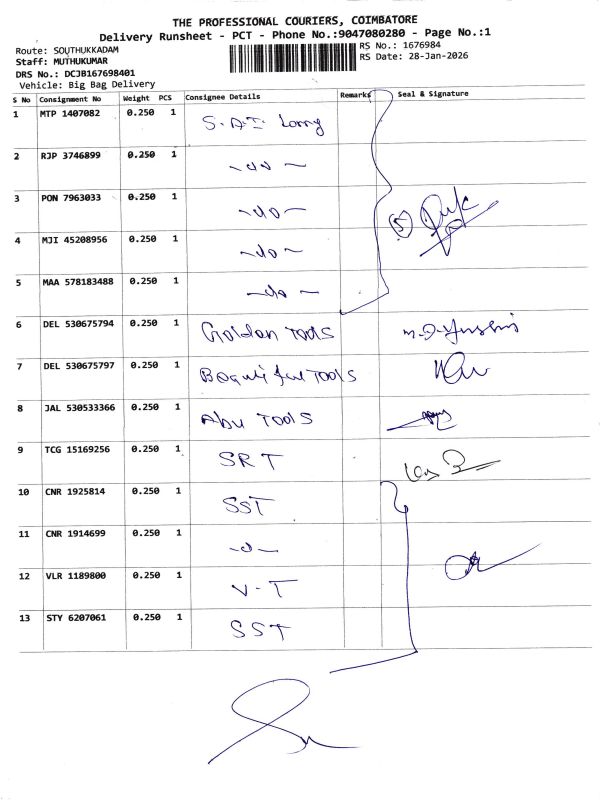 THE PROFESSIONAL COURIERS, COIMBATORE
Delivery Runsheet - PCT - Phone No.:9047080280 - Page No.:1
Route: SOUTHUKKADAM
Staff: MUTHUKUMAR
DRS No.: DCJB167698401
Vehicle: Big Bag Delivery
RS No.: 1676984
RS Date: 28-Jan-2026
S No Consignment No Weight PCS Consignee Details Remarks Seal & Signature
1 MTP 1407082 0.250 1 S.A.I. Lorry
2 RJP 3746899 0.250 1 -do-
3 PON 7963033 0.250 1 -do-
4 MJI 45208956 0.250 1 -do-
5 MAA 578183488 0.250 1 -do-
5
6 DEL 530675794 0.250 1 Golden Tools
7 DEL 530675797 0.250 1 TOOLS
8 JAL 530533366 0.250 1 Abu TOOLS
9 TCG 15169256 0.250 1 SRT
10 CNR 1925814 0.250 1 SST
11 CNR 1914699 0.250 1
12 VLR 1189800 0.250 1 V-T
13 STY 6207061 0.250 1 SST